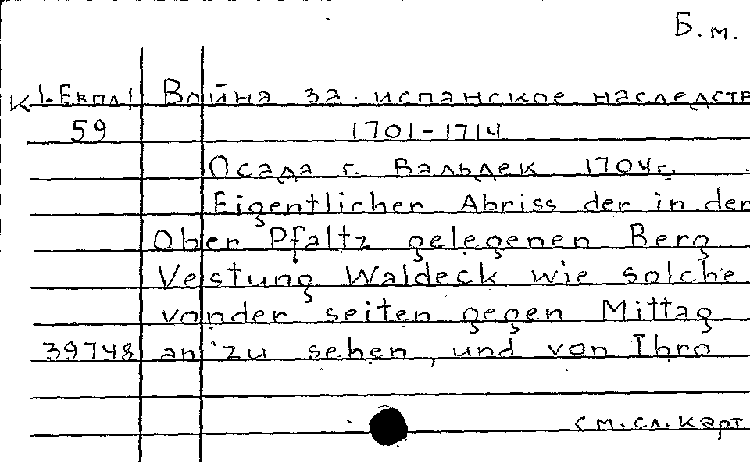 Б.м.
К 1-Евпл1 Война за испанское наследств
59 1701-1714
Осада г. Вальдек 1704г.
Eigentlicher Abriss der in der
Ober Pfaltz gelegenen Berg
Vestung Waldeck wie solche
vonder seiten gegen Mittag
39748 an zu sehen, und von Ihro
см.сл.карт